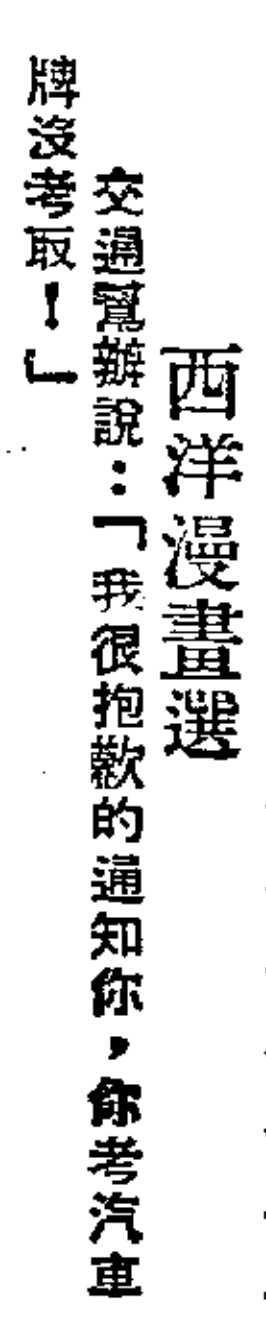 西洋漫畫選
交通幫辦說：「我很抱歉的通知你，你考汽車
牌沒考取！」